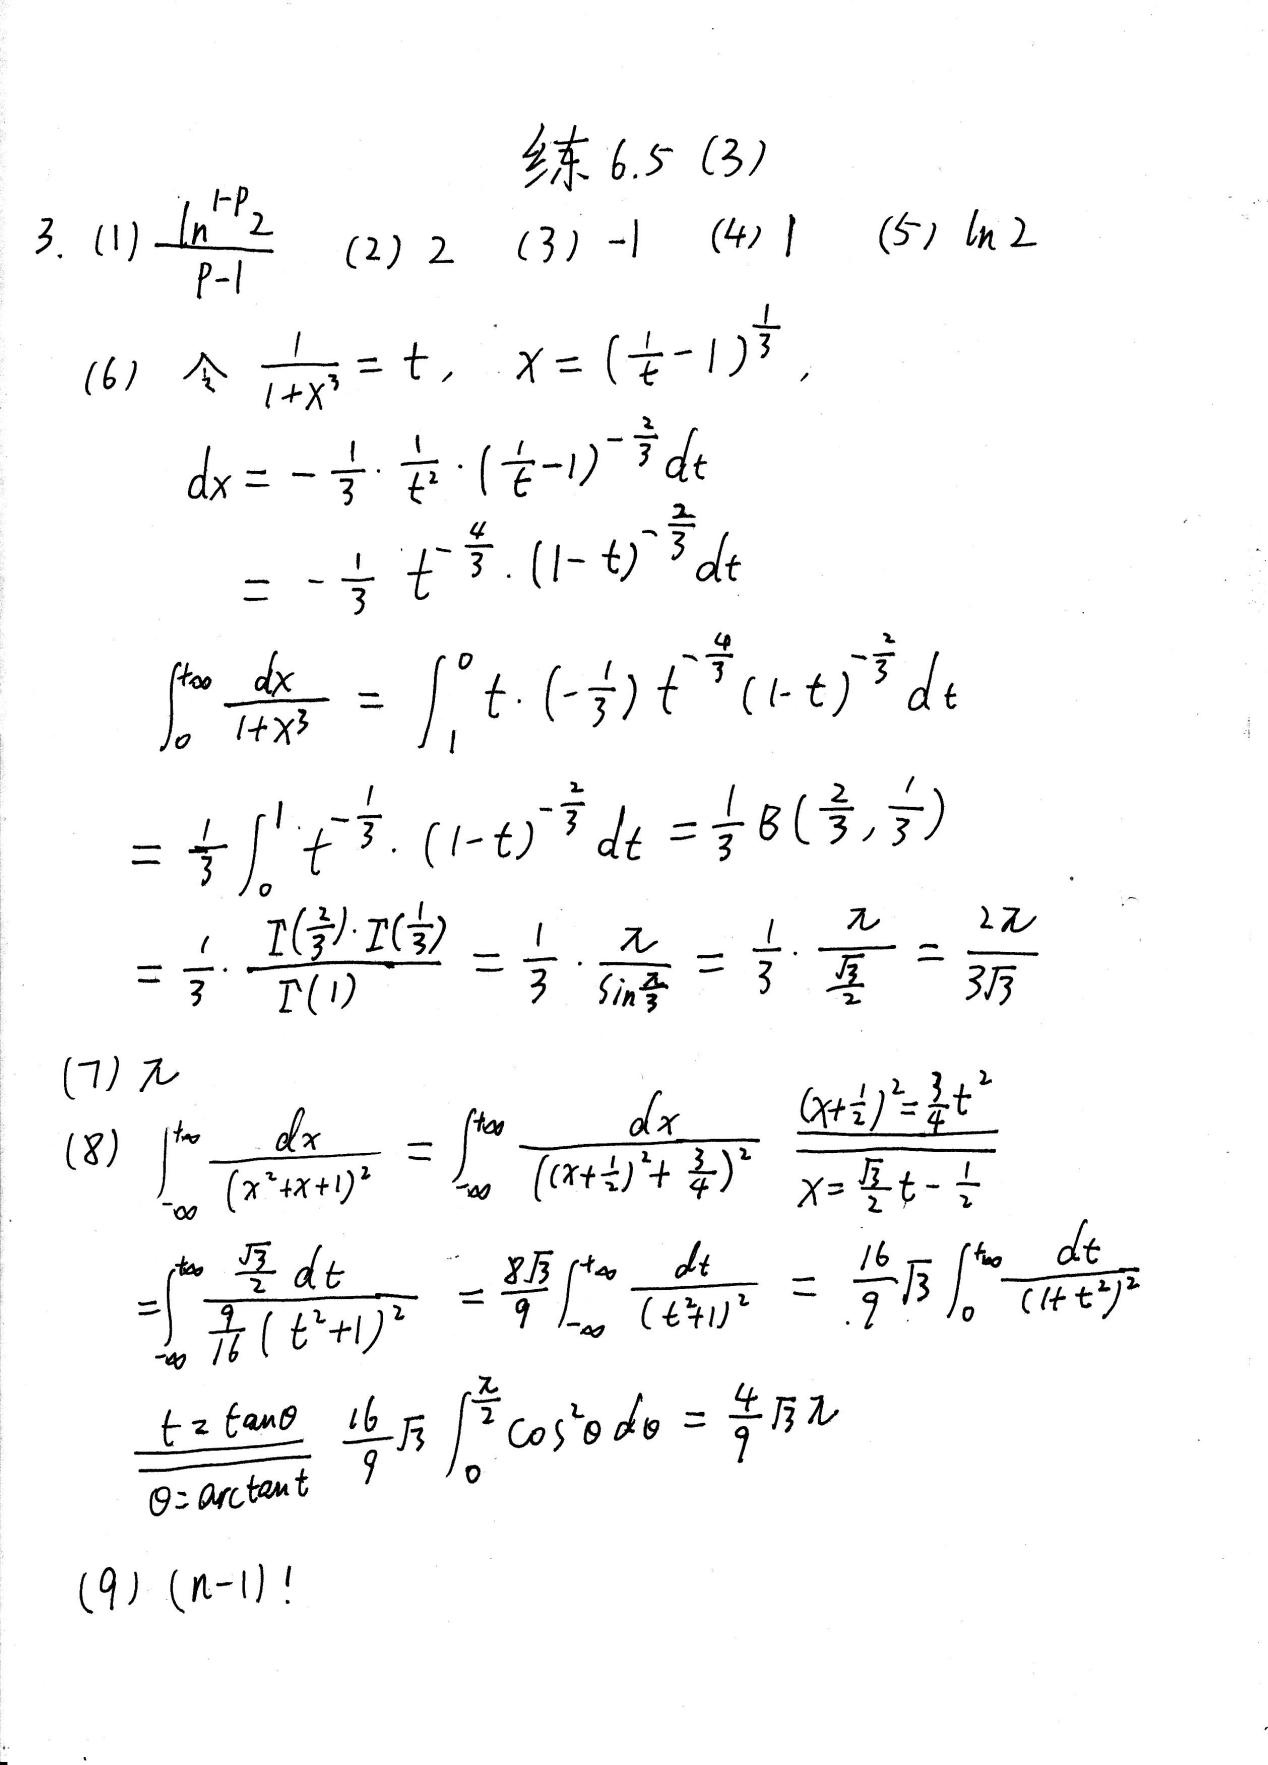 练 6.5 (3)
3. (1) \frac{\ln^{1-p} 2}{p-1} (2) 2 (3) -1 (4) 1 (5) ln 2
(6) 令 \frac{1}{1+x^3} = t, x = (\frac{1}{t}-1)^{\frac{1}{3}},
dx = -\frac{1}{3} \cdot \frac{1}{t^2} \cdot (\frac{1}{t}-1)^{-\frac{2}{3}} dt
= -\frac{1}{3} t^{-\frac{4}{3}} \cdot (1-t)^{-\frac{2}{3}} dt
\int_0^{+\infty} \frac{dx}{1+x^3} = \int_1^0 t \cdot (-\frac{1}{3}) t^{-\frac{4}{3}} (1-t)^{-\frac{2}{3}} dt
= \frac{1}{3} \int_0^1 t^{-\frac{1}{3}} \cdot (1-t)^{-\frac{2}{3}} dt = \frac{1}{3} B(\frac{2}{3}, \frac{1}{3})
= \frac{1}{3} \cdot \frac{Γ(\frac{2}{3}) \cdot Γ(\frac{1}{3})}{Γ(1)} = \frac{1}{3} \cdot \frac{π}{\sin\frac{π}{3}} = \frac{1}{3} \cdot \frac{π}{\frac{\sqrt{3}}{2}} = \frac{2π}{3\sqrt{3}}
(7) π
(8) \int_{-\infty}^{+\infty} \frac{dx}{(x^2+x+1)^2} = \int_{-\infty}^{+\infty} \frac{dx}{((x+\frac{1}{2})^2+\frac{3}{4})^2} \xlongequal[x=\frac{\sqrt{3}}{2}t-\frac{1}{2}]{(x+\frac{1}{2})^2=\frac{3}{4}t^2}
= \int_{-\infty}^{+\infty} \frac{\frac{\sqrt{3}}{2} dt}{\frac{9}{16}(t^2+1)^2} = \frac{8\sqrt{3}}{9} \int_{-\infty}^{+\infty} \frac{dt}{(t^2+1)^2} = \frac{16}{9}\sqrt{3} \int_0^{+\infty} \frac{dt}{(1+t^2)^2}
\xlongequal[θ=arctan t]{t=tanθ} \frac{16}{9}\sqrt{3} \int_0^{\frac{π}{2}} cos^2θ dθ = \frac{4}{9}\sqrt{3}π
(9) (n-1)!